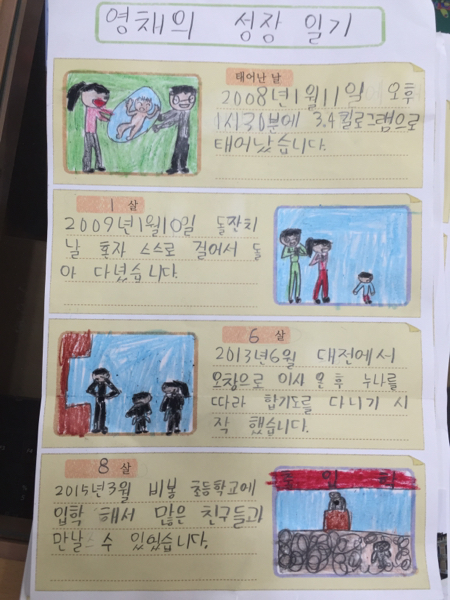 영채의 성장 일기
태어난 날
2008년 1월 11일 오후
1시 30분에 3.4킬로그램으로
태어났습니다.
1 살
2009년 1월 10일 돌잔치
날 혼자 스스로 걸어서 돌
아 다녔습니다.
6 살
2013년 6월 대전에서
오창으로 이사 온 후 누나를
따라 합기도를 다니기 시
작 했습니다.
8 살
2015년 3월 비봉 초등학교에
입학 해서 많은 친구들과
만날 수 있었습니다.
입